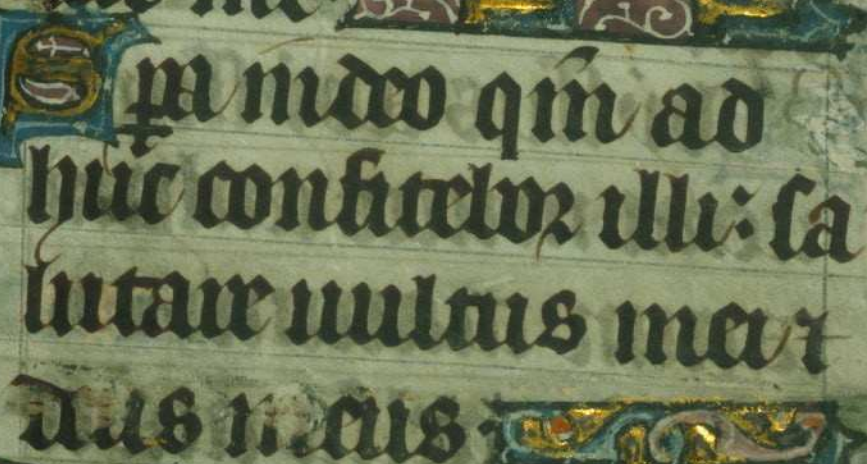 Sꝑa in deo qm̄ ad
huc confitebor illi: sa
lutare uultus mei ⁊
deus meus